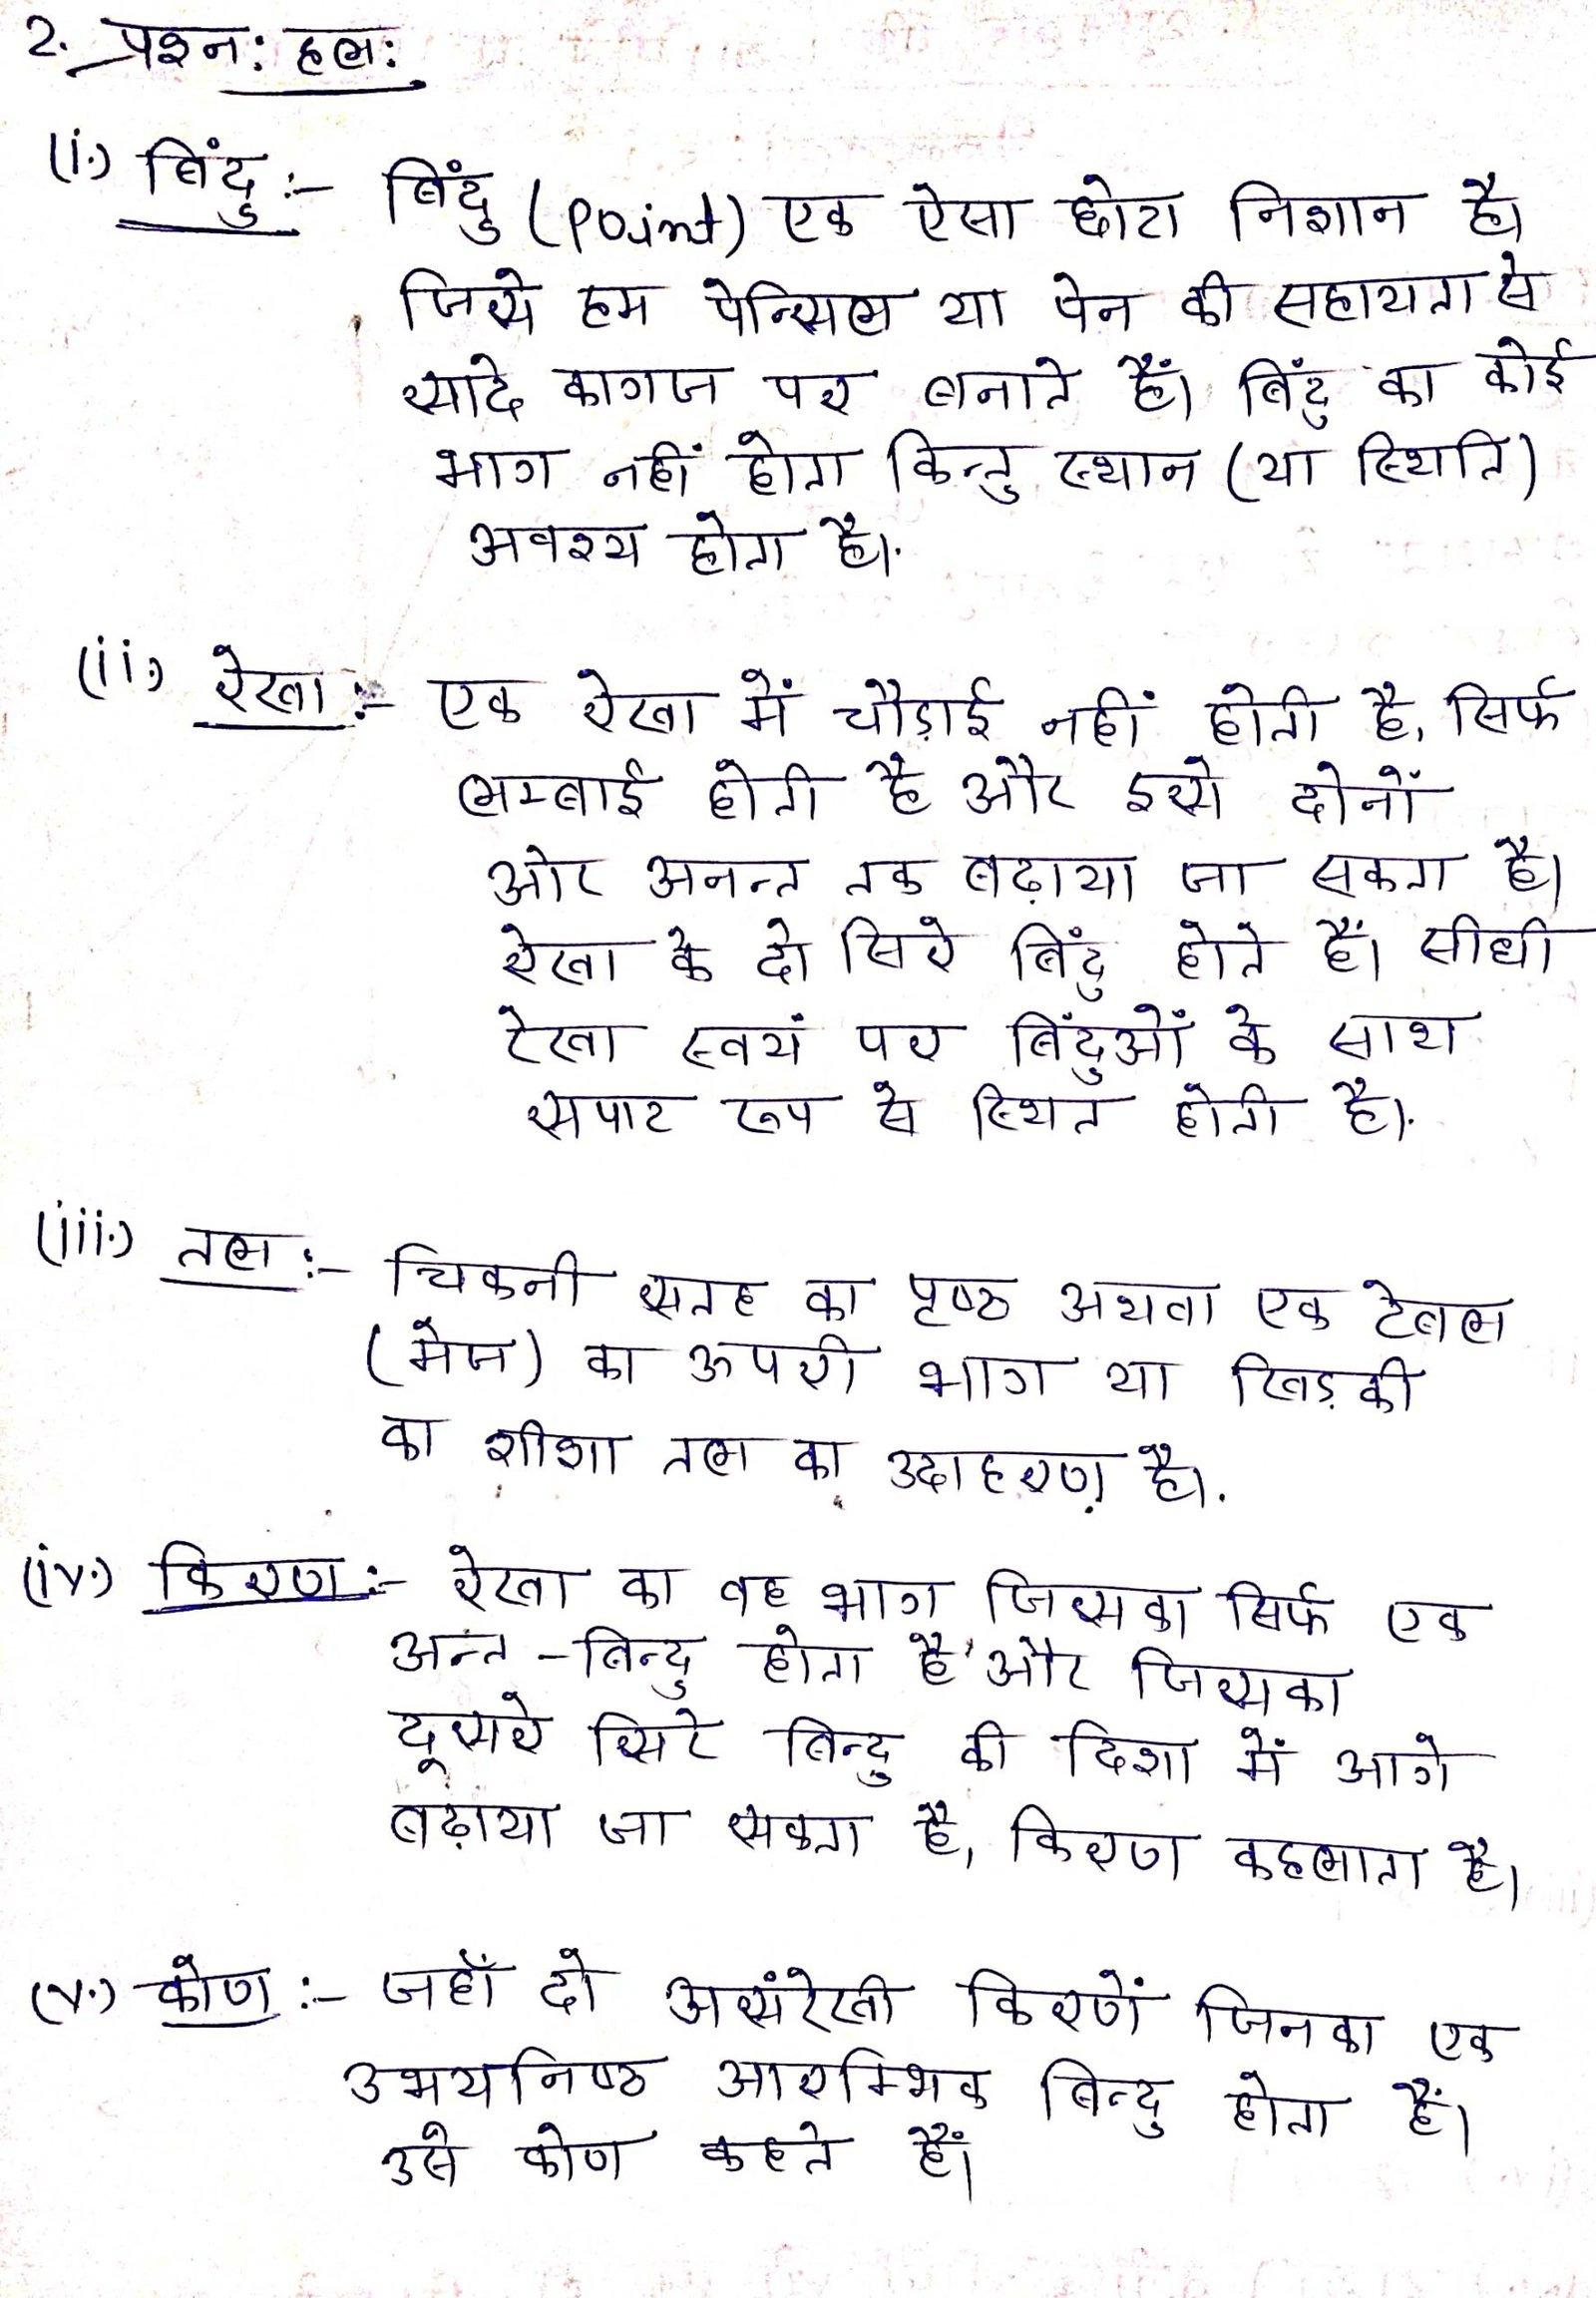 2. प्रश्न: हल:
(i.) बिंदु :- बिंदु (Point) एक ऐसा छोटा निशान है।
जिसे हम पेन्सिल या पेन की सहायता से
सादे कागज पर बनाते हैं। बिंदु का कोई
भाग नहीं होता किन्तु स्थान (या स्थिति)
अवश्य होता है।
(ii.) रेखा :- एक रेखा में चौड़ाई नहीं होती है, सिर्फ
लम्बाई होती है और इसे दोनों
ओर अनन्त तक बढ़ाया जा सकता है।
रेखा के दो सिरे बिंदु होते हैं। सीधी
रेखा स्वयं पर बिंदुओं के साथ
सपाट रूप से स्थित होती है।
(iii.) तल :- चिकनी सतह का पृष्ठ अथवा एक टेबल
(मेज) का ऊपरी भाग या खिड़की
का शीशा तल का उदाहरण है।
(iv.) किरण :- रेखा का वह भाग जिसका सिर्फ एक
अन्त - बिन्दु होता है और जिसका
दूसरे सिरे बिन्दु की दिशा में आगे
बढ़ाया जा सकता है, किरण कहलाता है।
(v.) कोण :- जहाँ दो असंरेखी किरणें जिनका एक
उभयनिष्ठ आरम्भिक बिन्दु होता हैं।
उसे कोण कहते हैं।